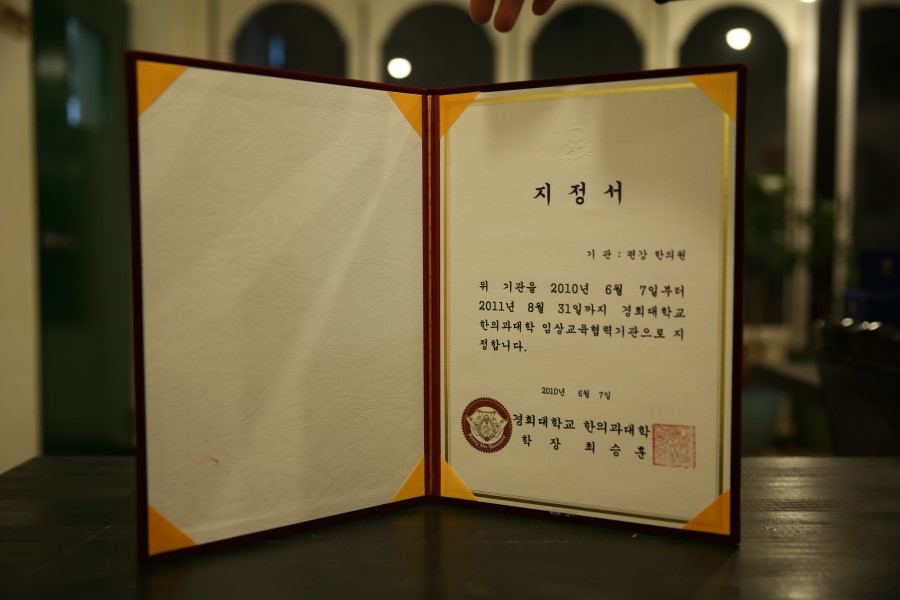 지 정 서
기 관 : 편강 한의원
위 기관을 2010년 6월 7일부터
2011년 8월 31일까지 경희대학교
한의과대학 임상교육협력기관으로 지
정합니다.
2010년 6월 7일
경희대학교 한의과대학
학 장 최 승 훈